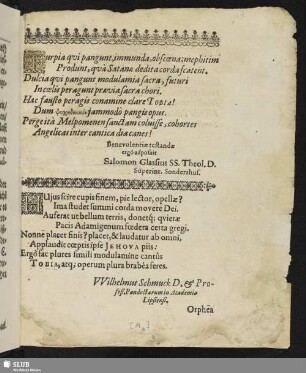 Turpia qvi pangunt, immunda, obscœna; mephitim
Produnt, qvâ Satanæ dedita corda scatent.
Dulcia qvi pangunt modulamia sacra, futuri
Incœlis peragunt præviâ sacra chori.
Hac fausto peragis conamine clare TOBIA!
Dum jammodò pangis opus.
Perge ità Melpomenen sanctam coluisse, cohortes
Angelicas inter cantica dia canes!
Benevolentiæ testandæ
ergò apposuit
Salomon Glassius SS. Theol. D.
Superint. Sondershus.
HUjus scire cupis finem, pie lector, opellæ?
Ima studet summi corda movere Dei.
Auferat ut bellum terris, donetq; quietæ
Pacis Adamigenum fœdera certa gregi.
Nonne placet finis? placet, & laudatur ab omni,
Applaudit cœptis ipse JEHOVA piis:
Ergò fac plures simili modulamine cantus
TOBIA, atq; operum plura brabéa feres.
VVilhelmus Schmuck D. & Pro-
fess. Pandectarum in Academia
Lipsiensi.
Orphêa
SLUB